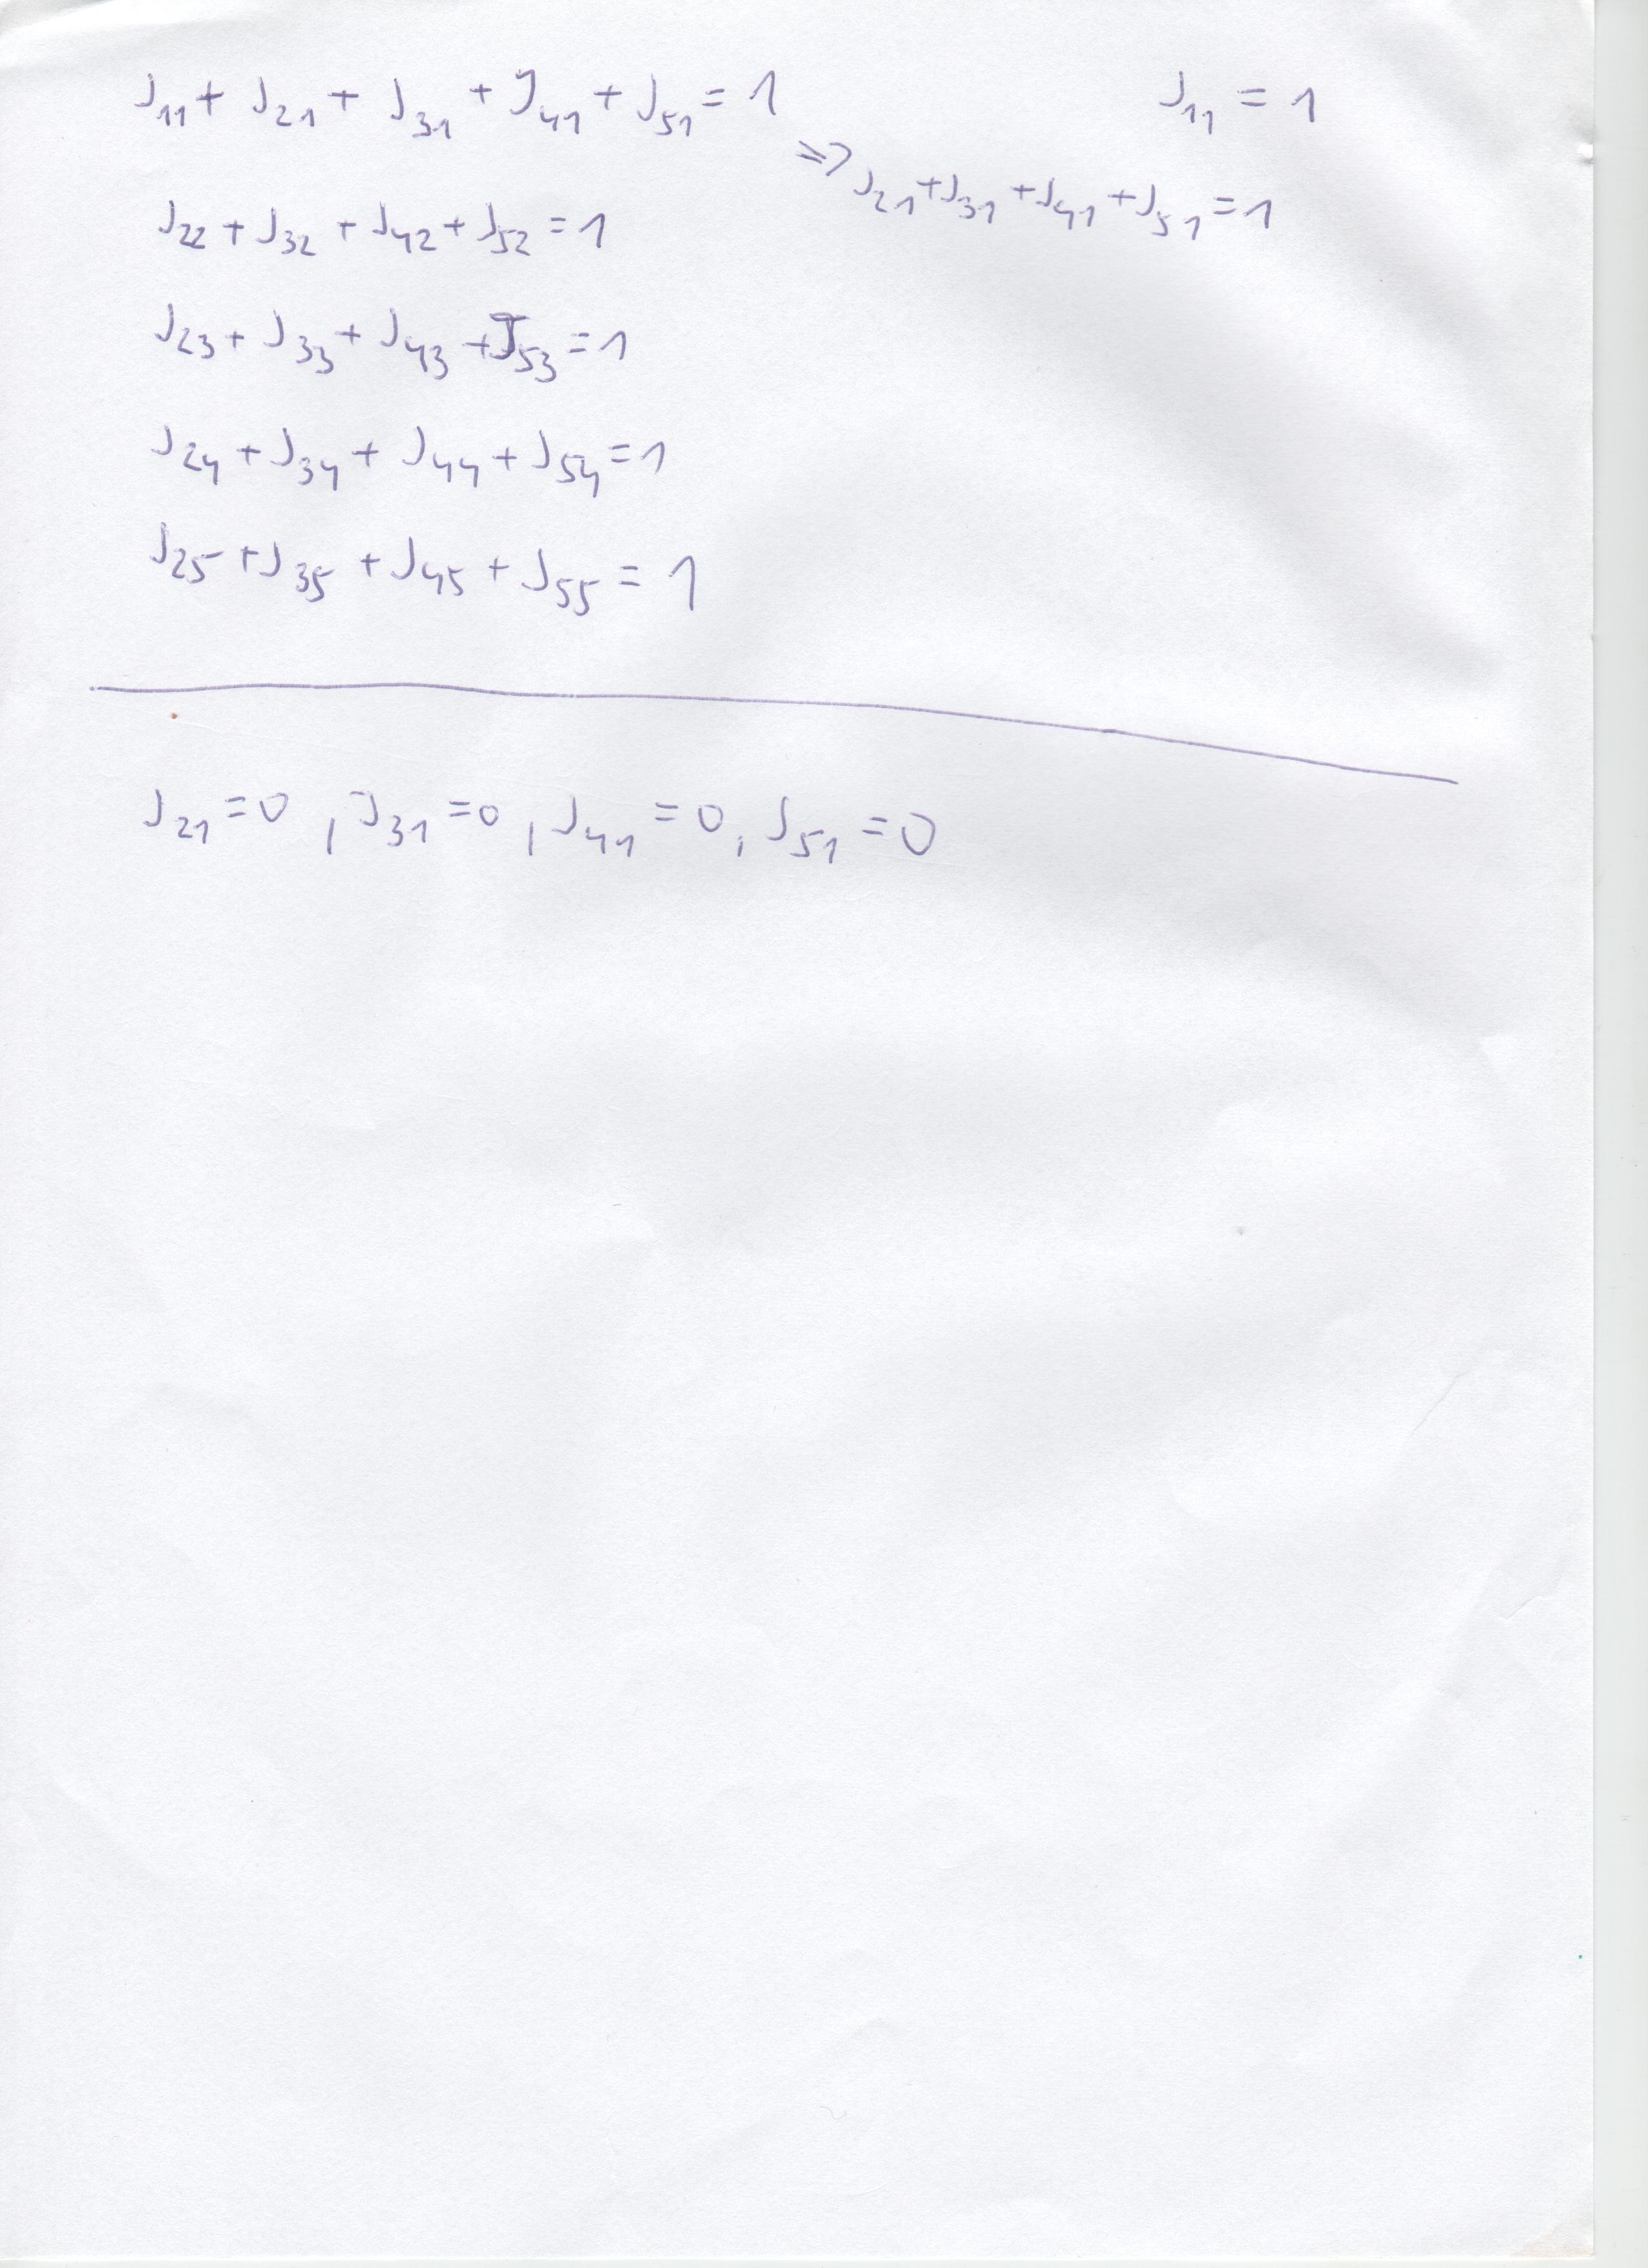 J₁₁ + J₂₁ + J₃₁ + J₄₁ + J₅₁ = 1
J₁₁ = 1
⇒ J₂₁ + J₃₁ + J₄₁ + J₅₁ = 1
J₂₂ + J₃₂ + J₄₂ + J₅₂ = 1
J₂₃ + J₃₃ + J₄₃ + J₅₃ = 1
J₂₄ + J₃₄ + J₄₄ + J₅₄ = 1
J₂₅ + J₃₅ + J₄₅ + J₅₅ = 1
J₂₁ = 0 , J₃₁ = 0 , J₄₁ = 0 , J₅₁ = 0